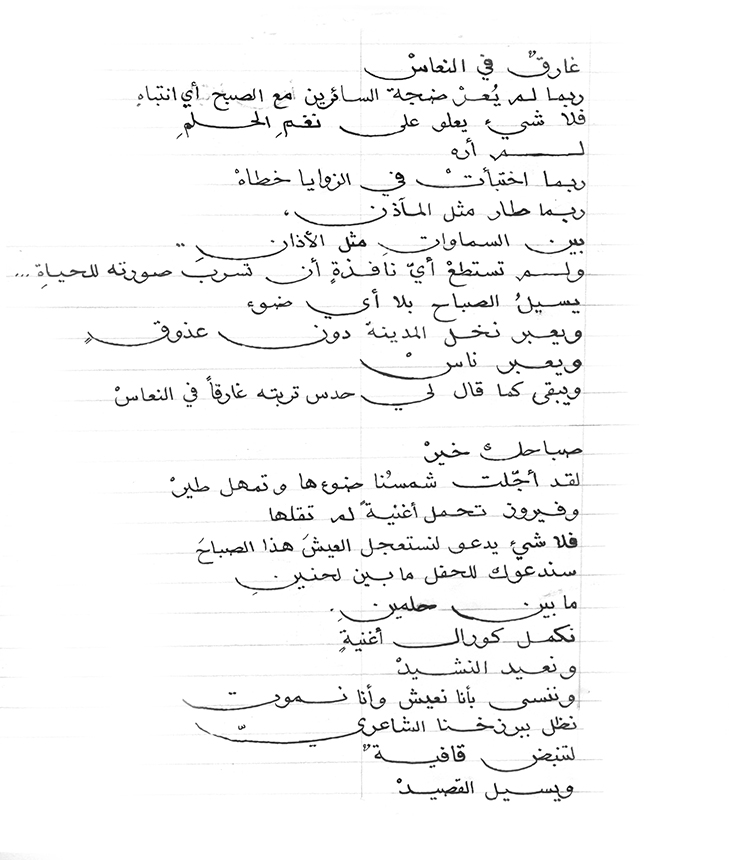 غارقٌ في النعاسْ
ربما لم يُعرْ ضجة السائرين مع الصبح أي انتباهِ
فلا شيء يعلو على نغمِ الحلمِ
لم أره
ربما اختبأتْ في الزوايا خطاهْ
ربما طار مثل المآذن،
بين السماواتِ مثل الأذانِ..
ولم تستطعْ أيّ نافذةٍ أن تسربَ صورته للحياةِ...
يسيلُ الصباح بلا أي ضوء
ويعبر نخل المدينة دون عذوقٍ
ويعبر ناسْ
ويبقى كما قال لي حدس تربته غارقاً في النعاسْ
صباحك خيرْ
لقد أجّلت شمسُنا ضوءها وتمهل طيرْ
وفيروز تحمل أغنيةً لم تقلها
فلا شيء يدعو لنستعجل العيشَ هذا الصباحَ
سندعوك للحفل ما بين لحنينِ
ما بين حلمينِ.
نكمل كورال أغنيةٍ
ونعيد النشيدْ
وننسى بأنا نعيش وأنا نموت
نظل ببرزخنا الشاعريّ
لتنبض قافيةٌ
ويسيل القصيدْ